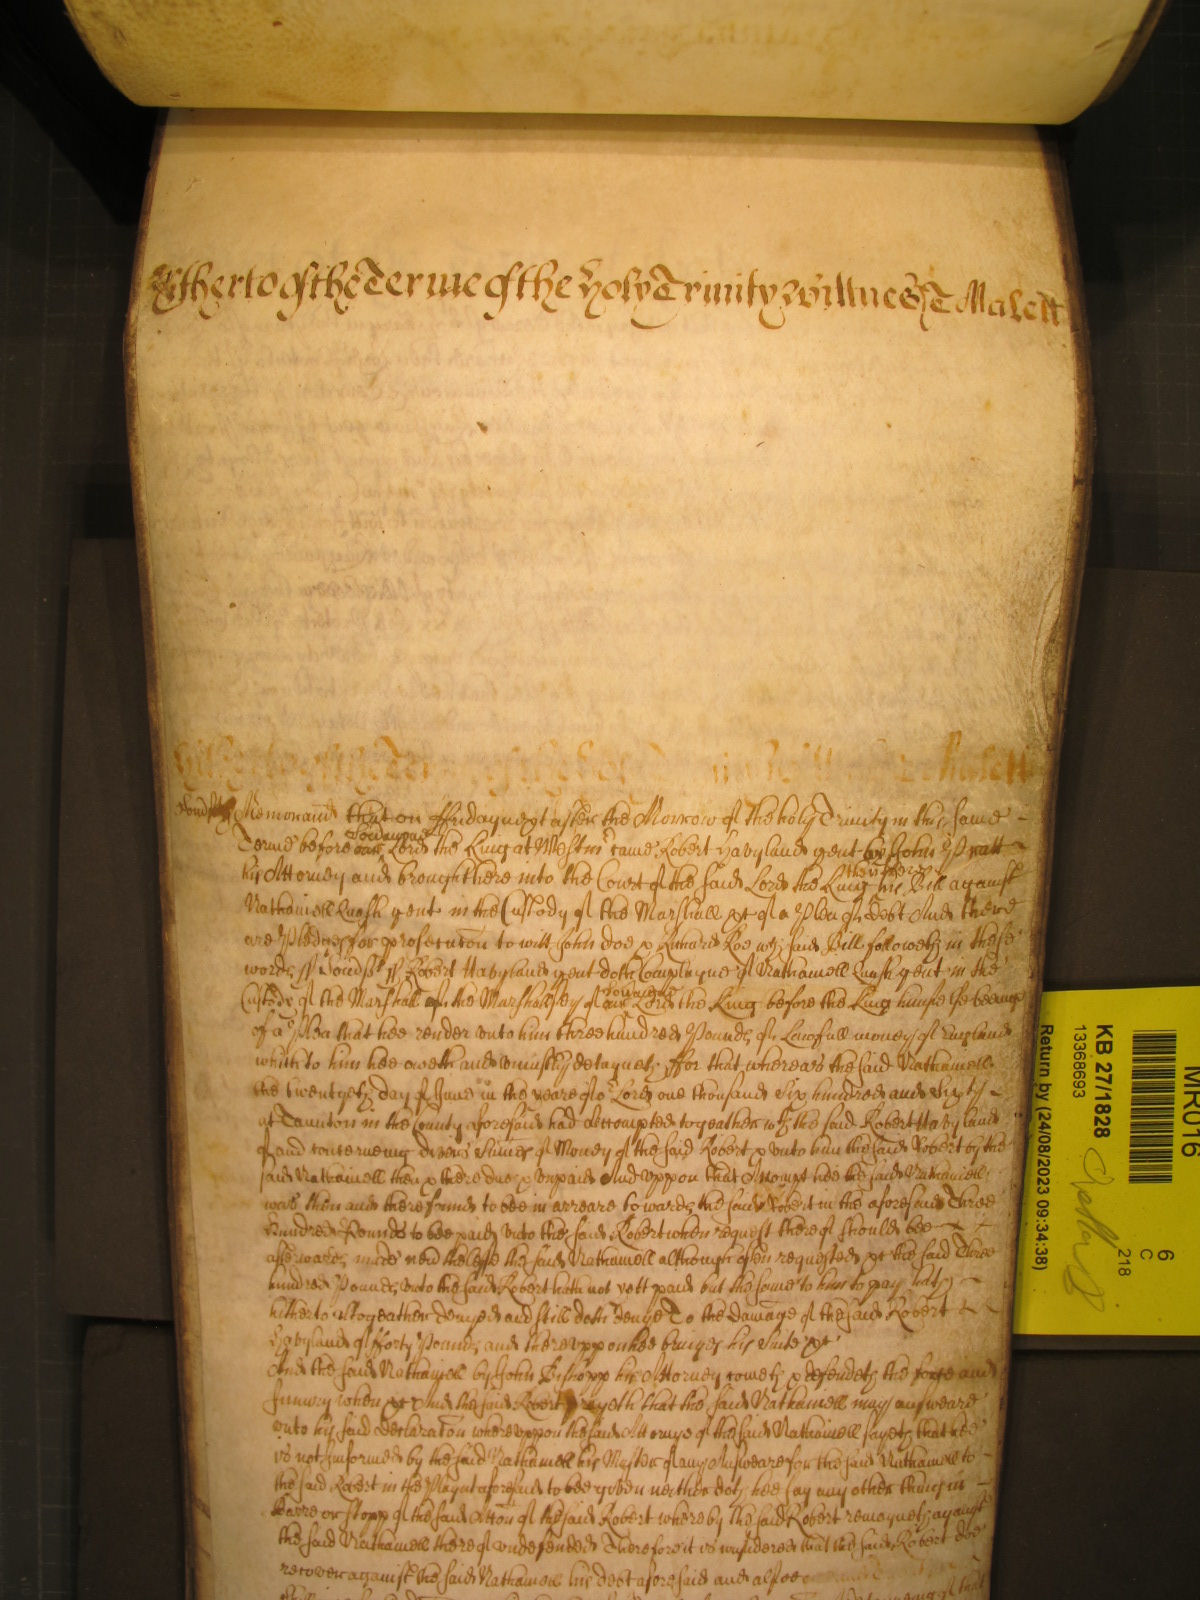 Hitherto of the Terme of the Holy Trinity Wittnes T Malett
Memorand that on ffriday next after the Morrow of the holy Trinity in this same
Terme before our Soveraigne Lord the King at Westmr came Robert Havyland gent by John Pratt
his Attorney and brought here into the Court of the said Lord the King then there his Bill against
Nathaniell Lush gent in the Custody of the Marshall &c of a Plea of Debt And there
are Pledges for prosecucon to witt John Doe & Richard Roe wch said Bill followeth in these
words ss Somsst ss Robert Havyland gent doth Complayne of Nathaniell Lush gent in the
Custody of the Marshall of the Marshalsey of our Soveraigne Lord the King before the King himselfe beeing
of a Plea that hee render unto him three hundred Pounds of Lawfull money of England
which to him hee oweth and uniustly detayneth ffor that whereas the said Nathaniell
the twentyeth day of June in the yeare of or Lord one thousand Six hundred and Sixty
at Taunton in the County aforesaid had Accompted togeather wth the said Robert Havyland
of and concerneing divers Summes of Money of the said Robert & unto him the said Robert by the
said Nathaniell then & there due & unpaid And uppon that Accompt hee the said Nathaniell
was then and there found to bee in arreare towards the said Robert in the aforesaid Three
Hundred Pounds to bee paid unto the said Robert when request thereof should bee
afterwards made neverthelesse the said Nathaniell although often requested &c the said Three
hundred Pounds unto the said Robert hath not yett paid but the same to him to pay hath
hitherto altogeather denyed and still doth denye To the damage of the said Robert
Havyland of fforty Pounds and thereuppon hee bringes his Suite &c
And the said Nathaniell by John Bishopp his Attorney cometh & defendeth the force and
Iniury when &c And the said Robert prayeth that the said Nathaniell may answeare
unto his said Declaracon whereuppon the said Attorney of the said Nathaniell sayeth that hee
is not Informed by the said Nathaniell his Master of any Answeare for the said Nathaniell to
the said Robert in the Playnt aforesaid to bee given neither doth hee say any other thing in
Barre or stopp of the said Accon of the said Robert whereby the said Robert remayneth against
the said Nathaniell thereof undefended Therefore it is considered that the said Robert doe
recover against the said Nathaniell his debt aforesaid and alsoe
MR016
KB 27/1828
13368693
Return by (24/08/2023 09:34:38)
6
C
218